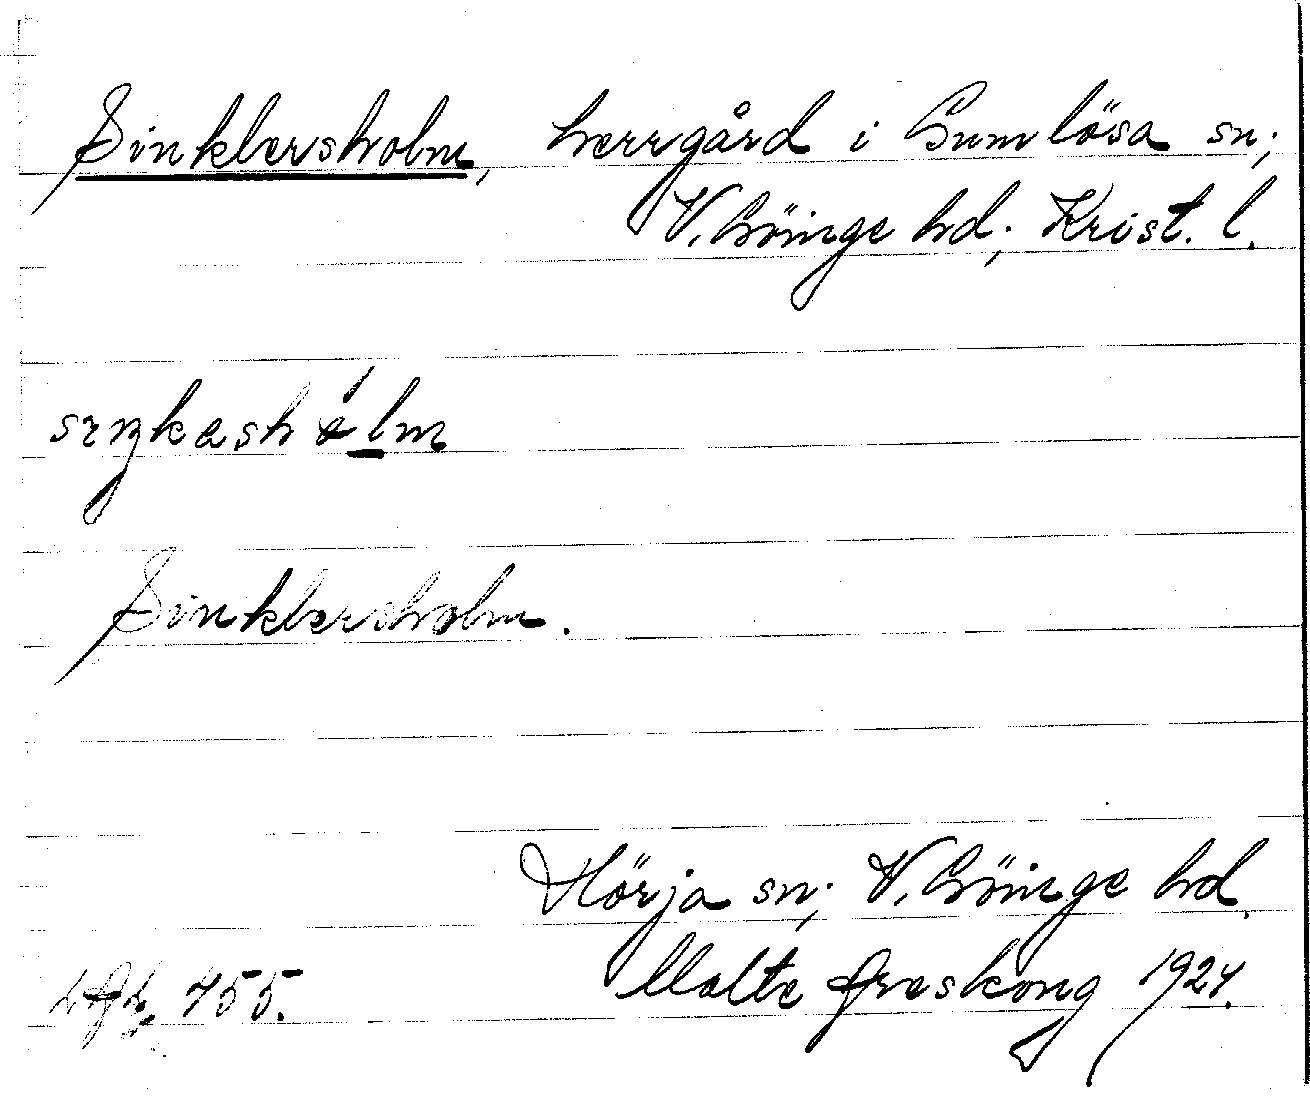 Sinklersholm, herrgård i Gumlösa sn;
V. Göinge hd; Krist. l.
Sinklersholm.
Hörja sn; V. Göinge hd.
Malte Areskoug 1924.
755.